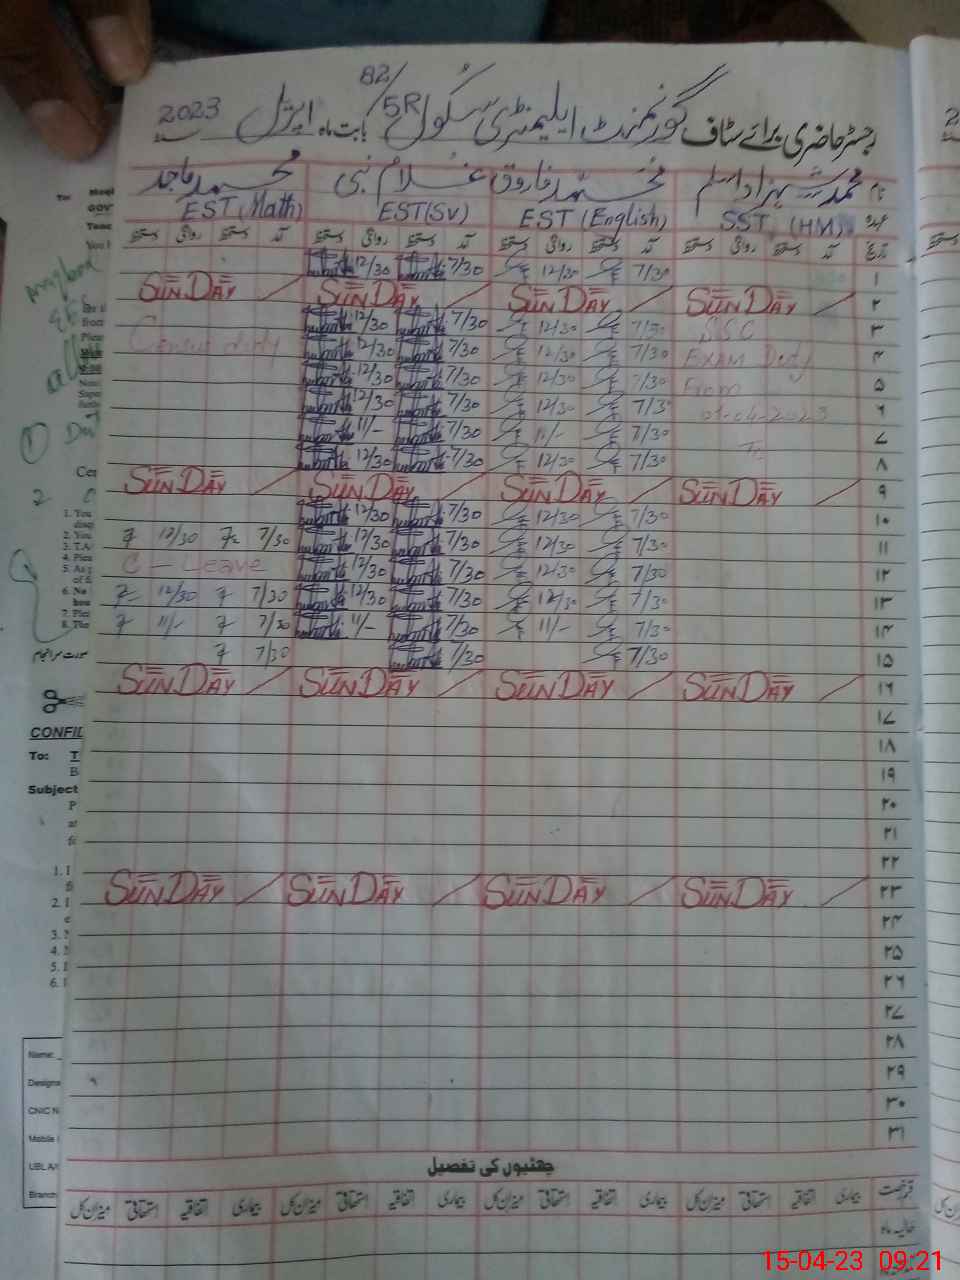 82/5R
رجسٹر حاضری برائے سٹاف گورنمنٹ ایلیمنٹری سکول بابت ماہ اپریل 2023 سنہ
نام محمد شہزاد اسلم محمد فاروق غلام نبی محمد ماجد
عہدہ SST (HM) EST (English) EST (SV) EST (Math)
تاریخ آمد دستخط روانگی دستخط آمد دستخط روانگی دستخط آمد دستخط روانگی دستخط آمد دستخط روانگی دستخط
۱ 7/30 12/30 7/30 12/30
۲ SUNDAY SUNDAY SUNDAY SUNDAY
۳ SSC 7/30 12/30 7/30 12/30
۴ Exam Duty 7/30 12/30 7/30 12/30 Census duty
۵ From 7/30 12/30 7/30 12/30
۶ 01-04-2023 7/30 12/30 7/30 12/30
۷ To 7/30 11/- 7/30 11/-
۸ 7/30 12/30 7/30 12/30
۹ SUNDAY SUNDAY SUNDAY SUNDAY
۱۰ 7/30 12/30 7/30 12/30
۱۱ 7/30 12/30 7/30 12/30 7/30 12/30
۱۲ 7/30 12/30 7/30 12/30 C - Leave
۱۳ 7/30 12/30 7/30 12/30 7/30 12/30
۱۴ 7/30 11/- 7/30 11/- 7/30 11/-
۱۵ 7/30 7/30 7/30
۱۶ SUNDAY SUNDAY SUNDAY SUNDAY
۱۷
۱۸
۱۹
۲۰
۲۱
۲۲
۲۳ SUNDAY SUNDAY SUNDAY SUNDAY
۲۴
۲۵
۲۶
۲۷
۲۸
۲۹
۳۰
۳۱
چھٹیوں کی تفصیل
قسم رخصت بیماری اتفاقیہ استحقاقی میزان کل بیماری اتفاقیہ استحقاقی میزان کل بیماری اتفاقیہ استحقاقی میزان کل بیماری اتفاقیہ استحقاقی میزان کل
حالیہ ماہ
To:
Subject
Name:
Mobile
Branch
15-04-23 09:21